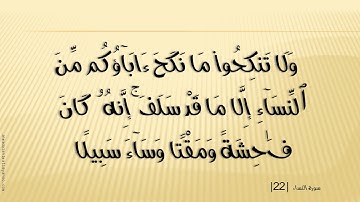 وَلَا تَنكِحُوا۟ مَا نَكَحَ ءَابَآؤُكُم مِّنَ
ٱلنِّسَآءِ إِلَّا مَا قَدْ سَلَفَ ۚ إِنَّهُۥ كَانَ
فَـٰحِشَةً وَمَقْتًا وَسَآءَ سَبِيلًا
سورة النساء |22|